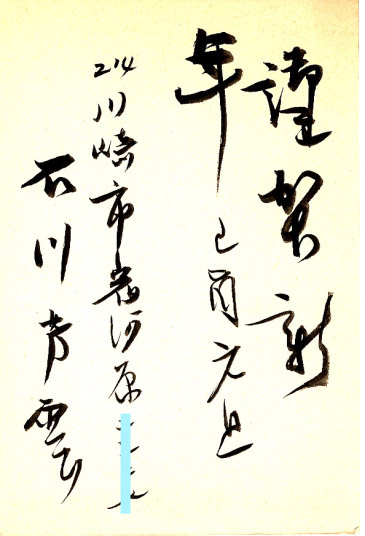 謹賀新
年
己酉元旦
214 川崎市宿河原
石川芳雲